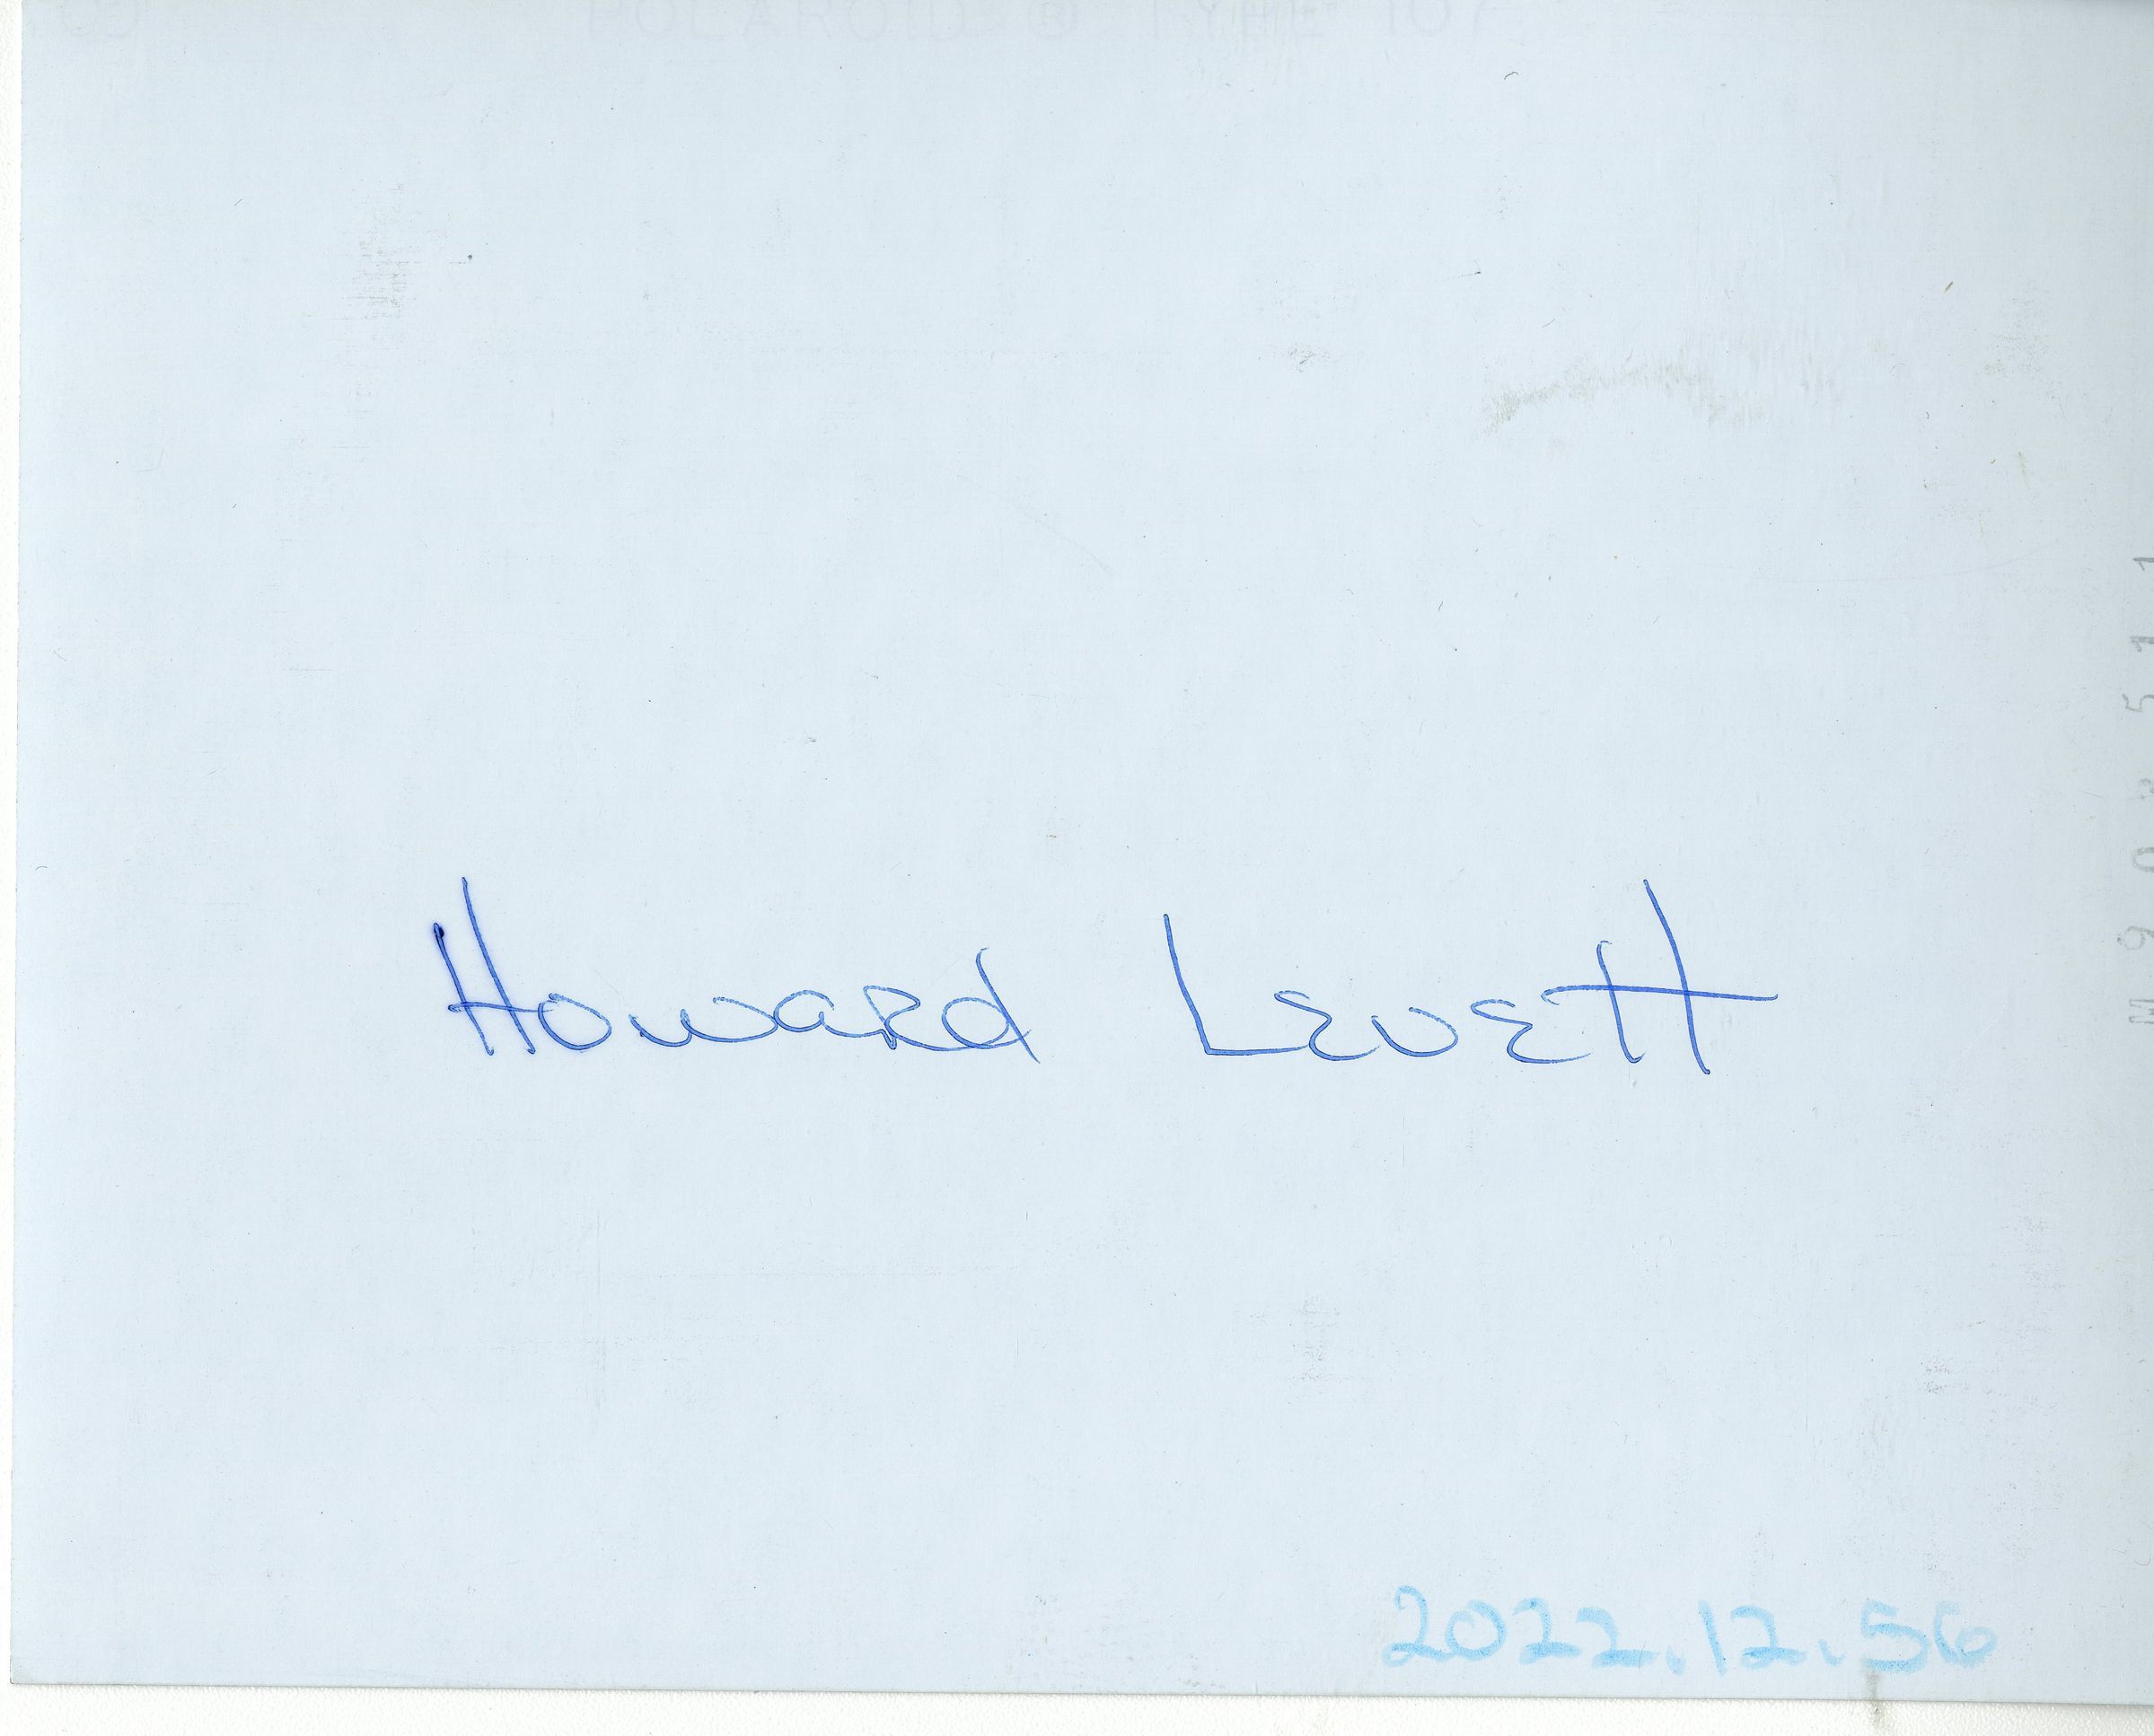 POLAROID ® TYPE 107
Howard Levett
2022.12.56